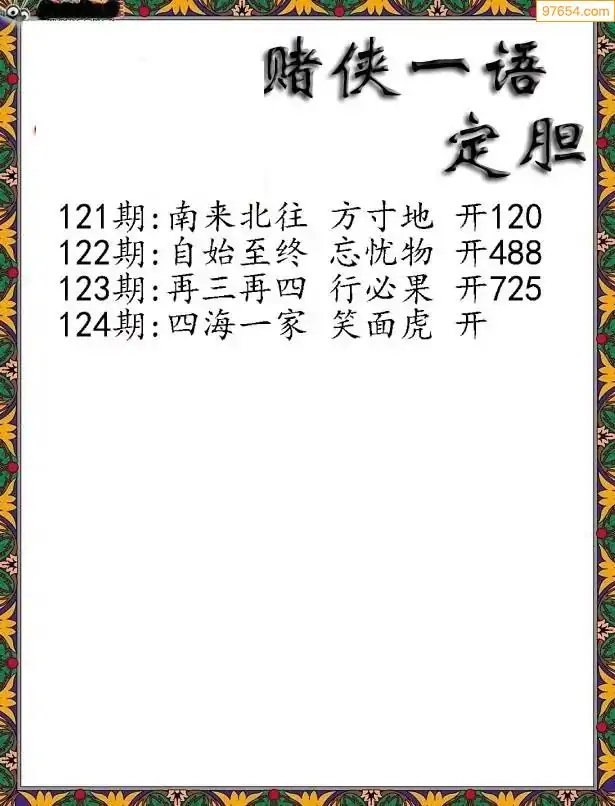 97654.com
赌侠一语
定胆
121期:南来北往 方寸地 开120
122期:自始至终 忘忧物 开488
123期:再三再四 行必果 开725
124期:四海一家 笑面虎 开